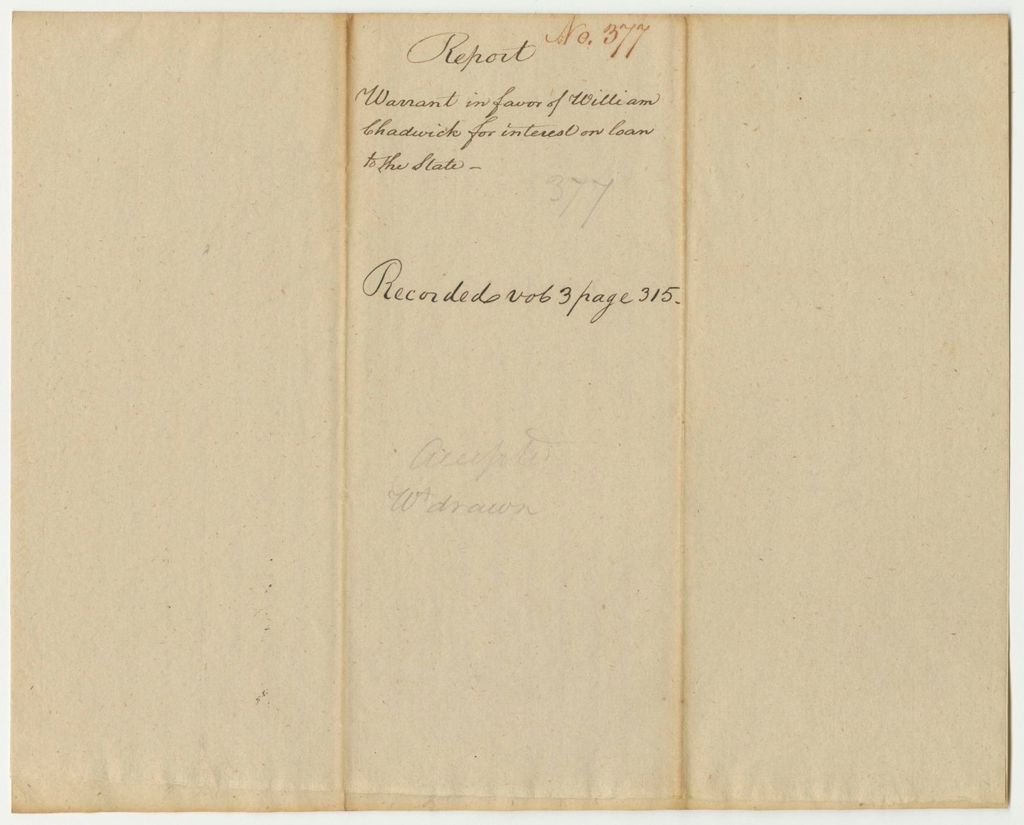 No. 377
Report
Warrant in favor of William
Chadwick for interest on loan
to the State -
377
Recorded vol 3 page 315.
Accepted
Wt drawn